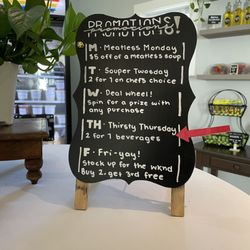 PROMOTIONS!
M - Meatless Monday
$5 off of a meatless soup
T - Souper Twosday
2 for 1 on chefs choice
W - Deal wheel!
Spin for a prize with
any purchase
TH - Thirsty Thursday
2 for 1 beverages
F - Fri-yay!
Stock up for the wknd
Buy 2, get 3rd free